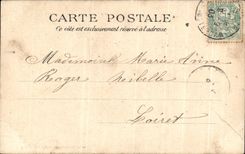 CARTE POSTALE
Ce côté est exclusivement réservé à l'adresse
Mademoiselle Marie Anne
Roger
Loiret